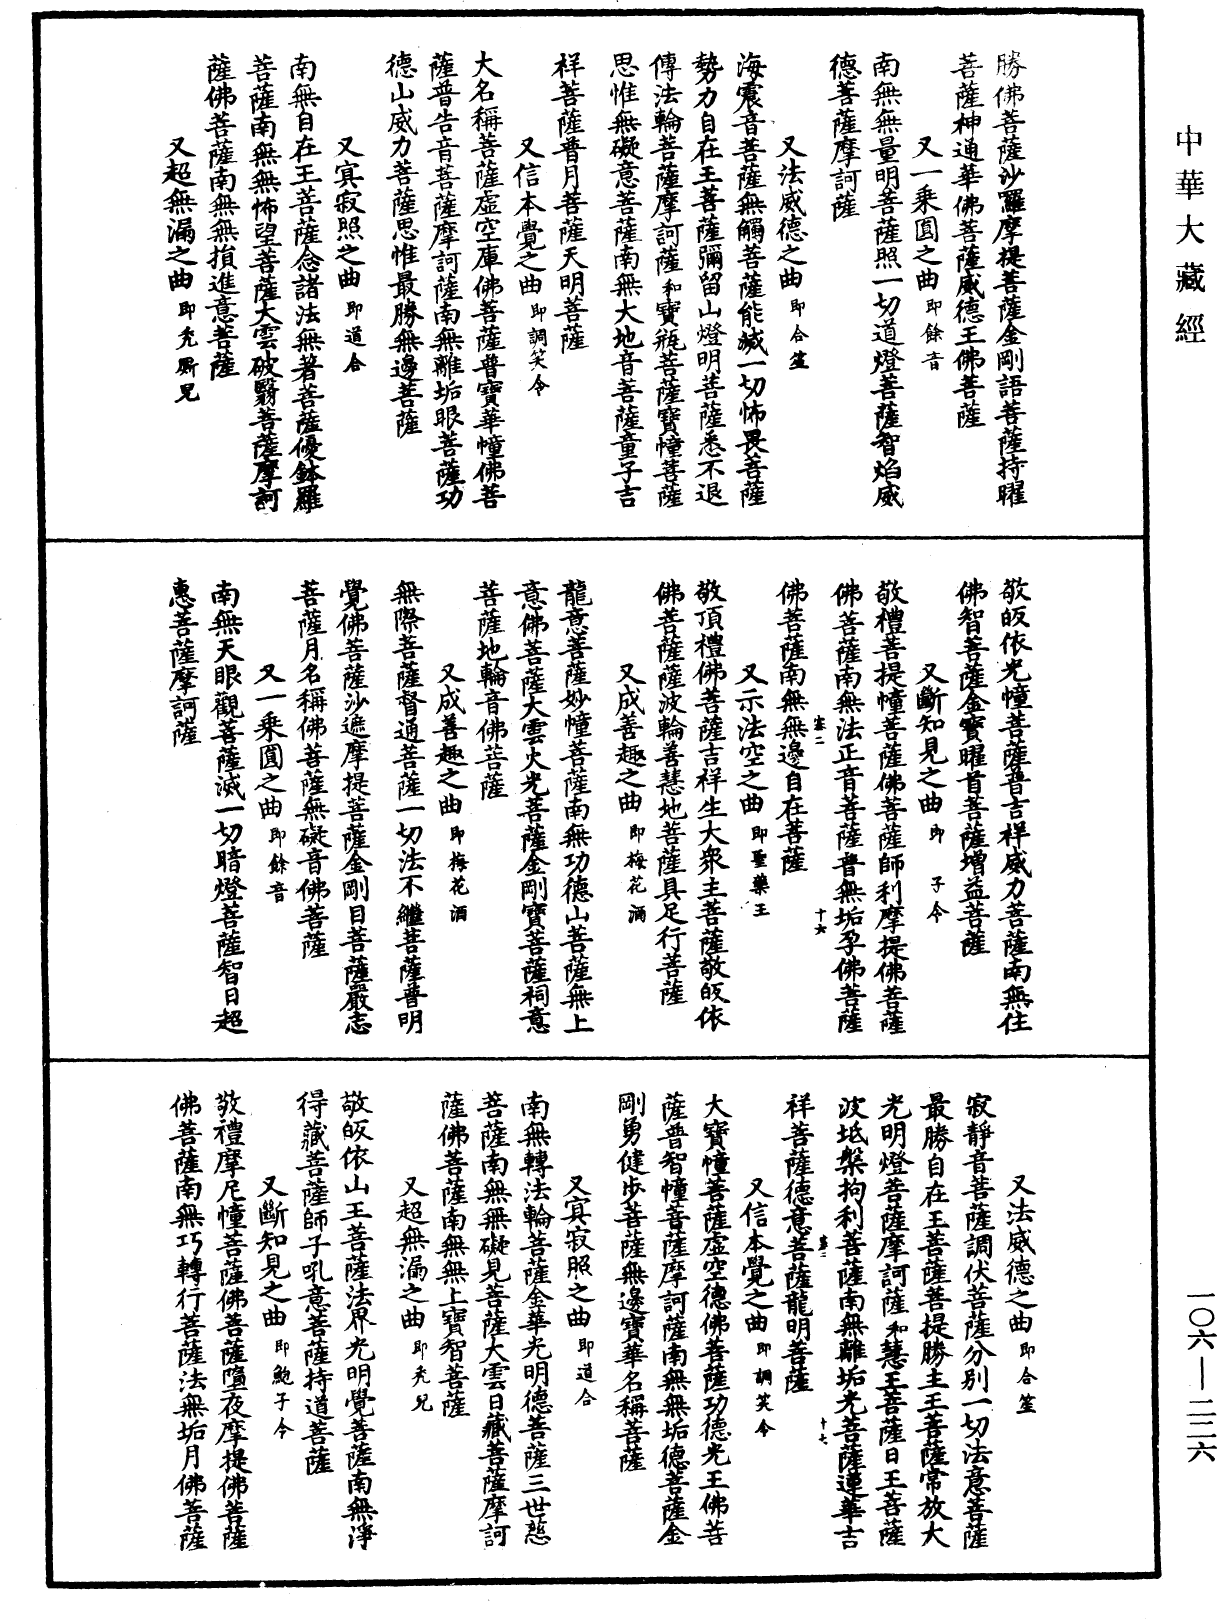 中華大藏經
勝佛菩薩沙羅摩提菩薩金剛語菩薩持曜
菩薩神通華佛菩薩威德王佛菩薩
又一乘圓之曲 即餘音
南無無量明菩薩照一切道燈菩薩智焰威
德菩薩摩訶薩
又法威德之曲 即合笙
海震音菩薩無觸菩薩能滅一切怖畏菩薩
勢力自在王菩薩彌留山燈明菩薩悉不退
傳法輪菩薩摩訶薩和寶瓶菩薩寶幢菩薩
思惟無礙意菩薩南無大地音菩薩童子吉
祥菩薩普月菩薩天明菩薩
又信本覺之曲 即調笑令
大名稱菩薩虛空庫佛菩薩普寶華幢佛菩
薩普告音菩薩摩訶薩南無離垢眼菩薩功
德山威力菩薩思惟最勝無邊菩薩
又㝠寂照之曲 即道合
南無自在王菩薩念諸法無著菩薩優鉢羅
菩薩南無無怖望菩薩大雲破翳菩薩摩訶
薩佛菩薩南無無損進意菩薩
又超無漏之曲 即禿厮兒
敬皈依光幢菩薩普吉祥威力菩薩南無住
佛智菩薩金寶曜首菩薩增益菩薩
又斷知見之曲 即 子令
敬禮菩提幢菩薩佛菩薩師利摩提佛菩薩
佛菩薩南無法正音菩薩普無垢孕佛菩薩
十六
佛菩薩南無無邊自在菩薩
又示法空之曲 即聖藥王
敬頂禮佛菩薩吉祥生大衆主菩薩敬皈依
佛菩薩薩波輪善慧地菩薩具足行菩薩
又成善趣之曲 即梅花酒
龍意菩薩妙幢菩薩南無功德山菩薩無上
意佛菩薩大雲火光菩薩金剛寶菩薩祠意
菩薩地輪音佛菩薩
又成善趣之曲 即梅花酒
無際菩薩督通菩薩一切法不繼菩薩普明
覺佛菩薩沙遮摩提菩薩金剛目菩薩嚴志
菩薩月名稱佛菩薩無礙音佛菩薩
又一乘圓之曲 即餘音
南無天眼觀菩薩滅一切暗燈菩薩智日超
惠菩薩摩訶薩
又法威德之曲 即合笙
寂靜音菩薩調伏菩薩分別一切法意菩薩
最勝自在王菩薩菩提勝主王菩薩常放大
光明燈菩薩摩訶薩和慧王菩薩日王菩薩
波坻槃拘利菩薩南無離垢光菩薩蓮華吉
十七
祥菩薩德意菩薩龍明菩薩
又信本覺之曲 即調笑令
大寶幢菩薩虛空德佛菩薩功德光王佛菩
薩普智幢菩薩摩訶薩南無無垢德菩薩金
剛勇健步菩薩無邊寶華名稱菩薩
又㝠寂照之曲 即道合
南無轉法輪菩薩金華光明德菩薩三世慈
菩薩南無無礙見菩薩大雲日藏菩薩摩訶
薩佛菩薩南無無上寶智菩薩
又超無漏之曲 即禿兒
敬皈依山王菩薩法界光明覺菩薩南無淨
得藏菩薩師子吼意菩薩持道菩薩
又斷知見之曲 即鮑子令
敬禮摩尼幢菩薩佛菩薩墮夜摩提佛菩薩
佛菩薩南無巧轉行菩薩法無垢月佛菩薩
一〇六—二二六